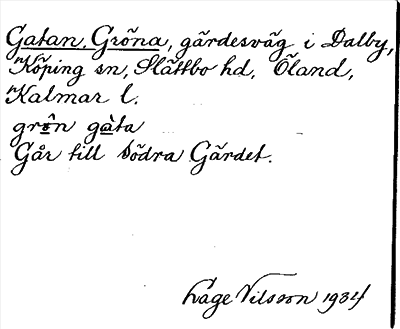 Gatan, Gröna, gärdesväg i Dalby,
Köping sn, Slättbo hd, Öland,
Kalmar l.
grôn gàta
Går till Södra Gärdet.
Åge Nilsson 1934